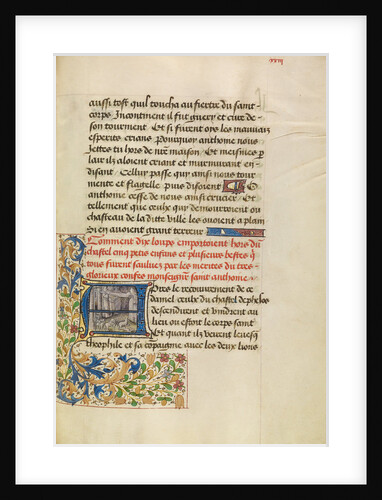 xxxj
aussi tost quil toucha au fiertre du saint
corps Incontinent il fut guery et cure de
son tourment Et si furent oys les mauuais
esperits crians Pourquoy anthome nous
Jettes tu hors de nostre maison Et meismes p
lair ilz aloient criant et murmurant en
disant Celluy passe quy ainsi nous tour
mente et flagelle puis disoient O
anthome cesse de nous ainsi crucier Et
tellement que ceulx quy demouroient ou
chasteau de la ditte ville les ouoient a plain
Si en auoient grant terreur
Comment dix loups emporterent hors du
chastel cinq petis enfans et plusieurs bestes q
tous furent sauluez par les merites du tres
glorieux confes monseigneur saint anthome
Apres le recouurement de ce
damel ceulx du chastel depheloe
descendirent et vindrent au
lieu ou estoit le corps saint
Et quant ilz veirent leuesq
theophile et sa compaignie auec les deux lions